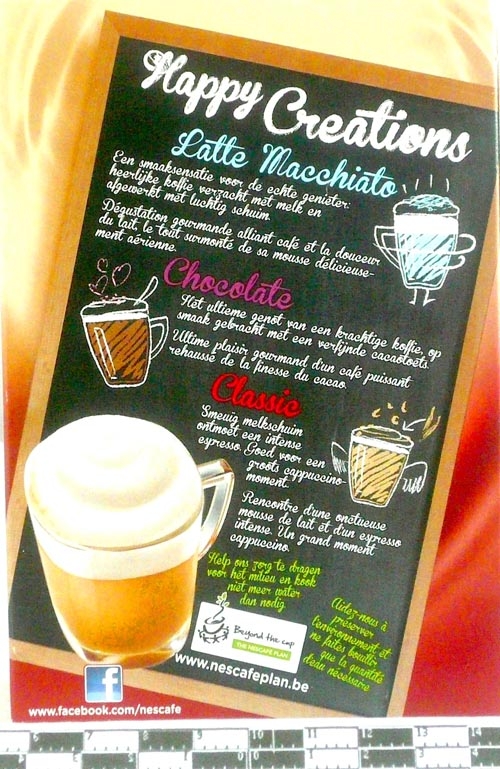 Happy Creations
Latte Macchiato
Een smaaksensatie voor de echte genieter:
heerlijke koffie verzacht met melk en
afgewerkt met luchtig schuim.
Dégustation gourmande alliant café et la douceur
du lait, le tout surmonté de sa mousse délicieuse-
ment aérienne.
Chocolate
Het ultieme genot van een krachtige koffie, op
smaak gebracht met een verfijnde cacaotoets.
Ultime plaisir gourmand d'un café puissant
rehaussé de la finesse du cacao.
Classic
Smeuïg melkschuim
ontmoet een intense
espresso. Goed voor een
groots cappuccino-
moment.
Rencontre d'une onctueuse
mousse de lait et d'un espresso
intense. Un grand moment
cappuccino.
Help ons zorg te dragen
voor het milieu en kook
niet meer water
dan nodig.
Aidez-nous à
préserver
l'environnement et
ne faites bouillir
que la quantité
d'eau nécessaire
Beyond the cup
THE NESCAFÉ PLAN
www.nescafeplan.be
f
www.facebook.com/nescafe
5 6 7 8 9 10 11 12 13 14